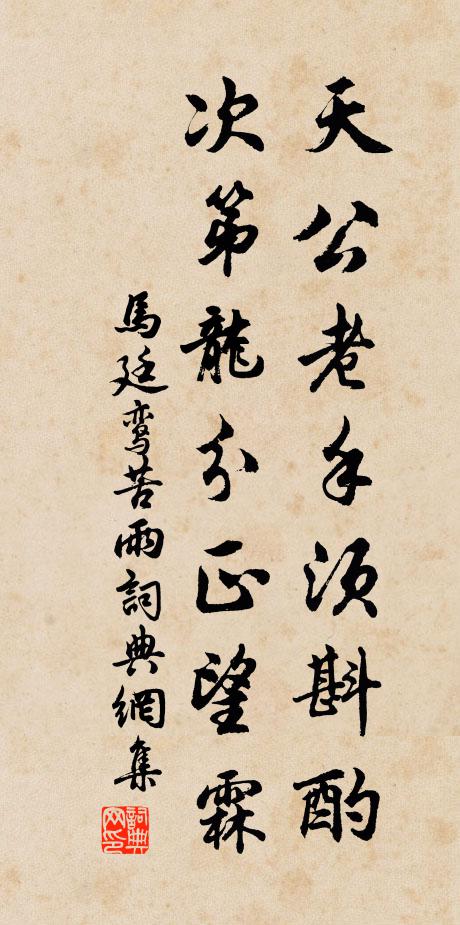 天公老手須斟酌
次第龍分正望霖
馬廷鸞苦雨詞典網集
詞典網印